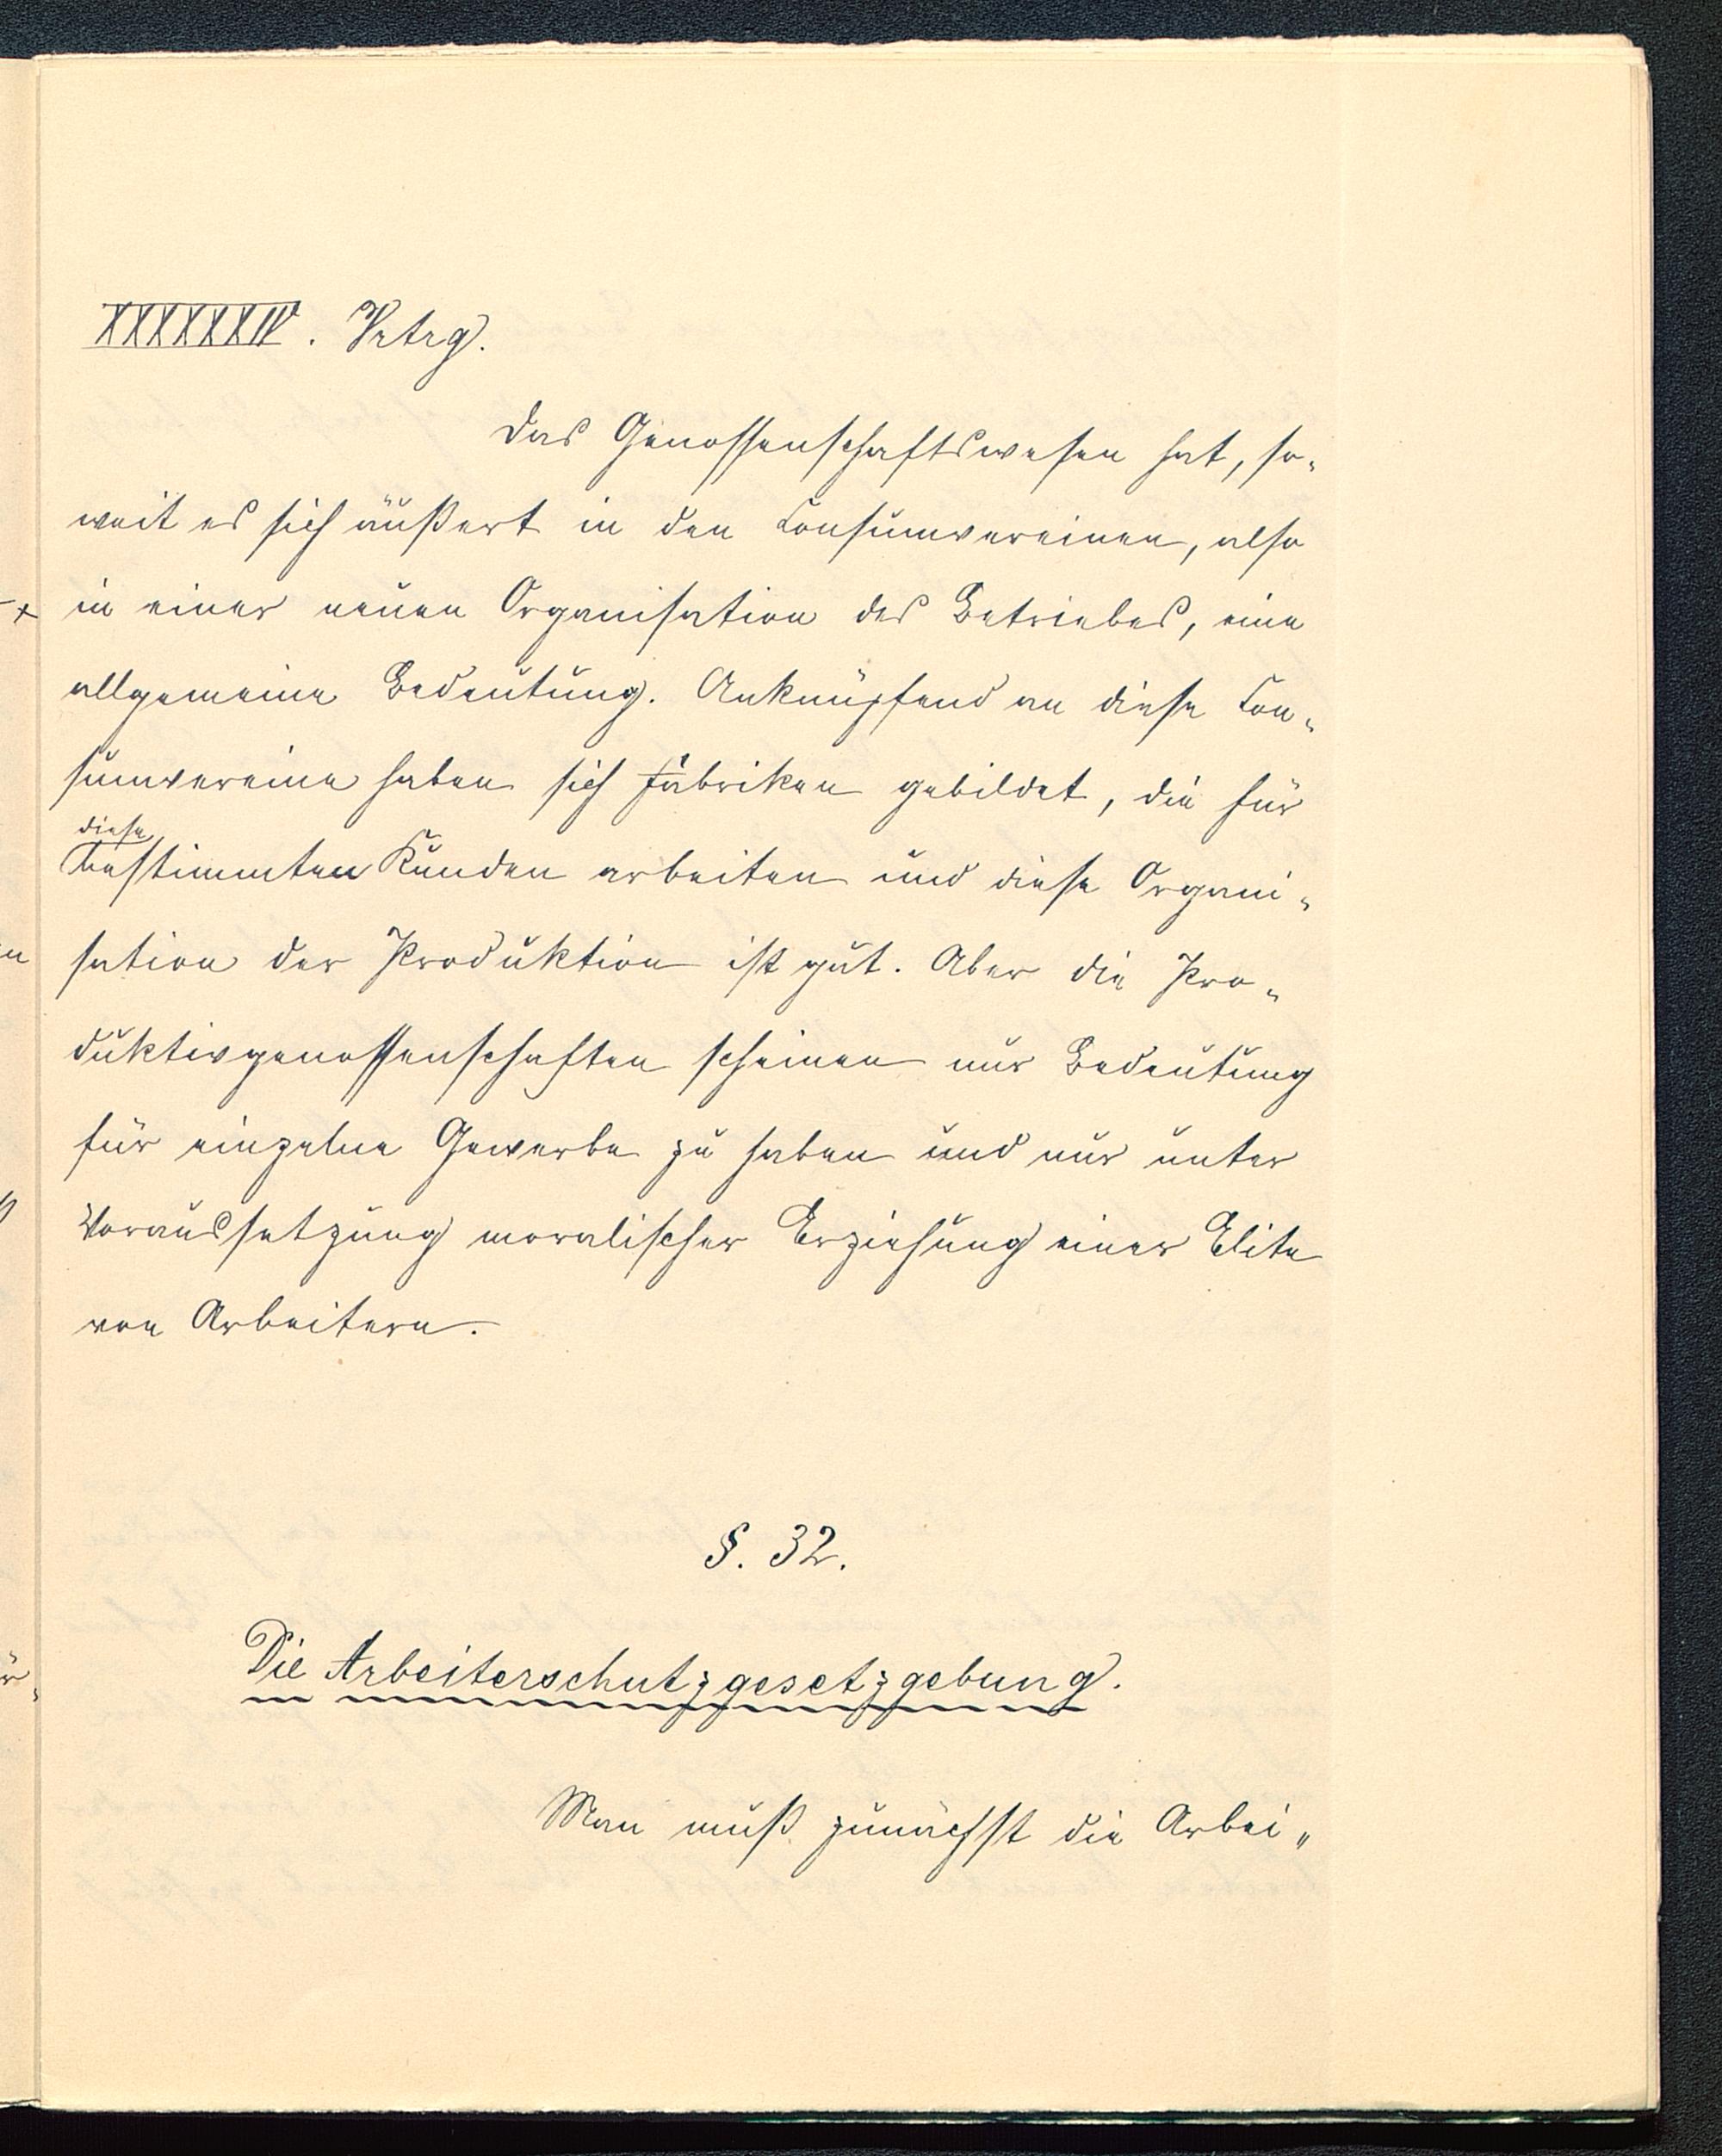 XXXXXXIV. Vrtrg.
Das Genossenschaftswesen hat, so-
weit es sich äußert in den Consumvereinen, also
in einer neuen Organisation des Betriebes, eine
allgemeine Bedeutung. Anknüpfend an diese Con-
sumvereine haben sich Fabriken gebildet, die für
diese
bestimmten Kunden arbeiten und diese Organi-
sation der Produktion ist gut. Aber die Pro-
duktivgenossenschaften scheinen nur Bedeutung
für einzelne Gewerbe zu haben und nur unter
Voraussetzung moralischer Erziehung einer Elite
von Arbeitern.
§. 32.
Die Arbeiterschutzgesetzgebung.
Man muß zunächst die Arbei-